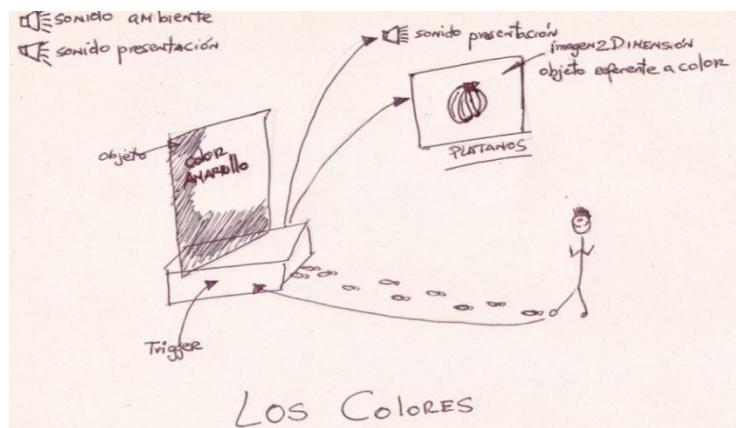 sonido ambiente
sonido presentación
sonido presentación
imagen 2 DIMENSIÓN
objeto referente a color
PLATANOS
objeto
COLOR
AMARILLO
Trigger
LOS COLORES